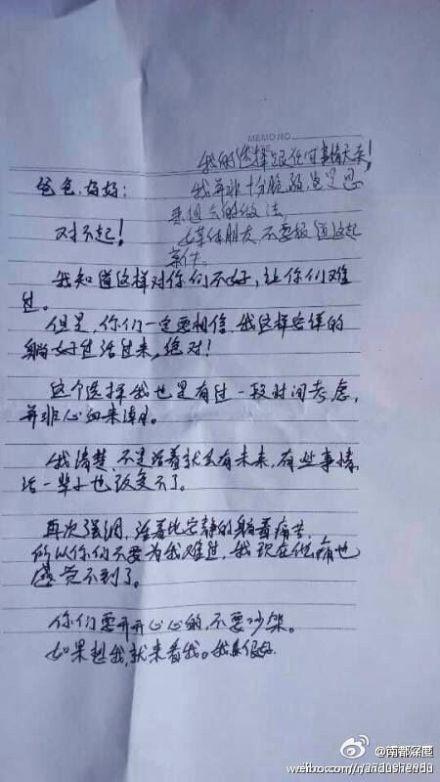 MEMO NO.
我的"选择"跟任何事情无关!
爸爸,妈妈:
我并非十分脆弱,也是思
来想去的做法,
对不起!
媒体朋友,不要报道这起
事件。
我知道这样对你们不好,让你们难
过。
但是,你们一定要相信,我这样安详的
躺好过活过来,绝对!
这个选择我也是有过一段时间考虑,
并非心血来潮。
我清楚,不是活着就会有未来,有些事情,
活一辈子也改变不了。
再次强调,活着比安静的躺着痛苦
所以你们不要为我难过,我现在伤痛也
感觉不到了。
你们要开开心心的,不要吵架。
如果想我,就来看我。我真很好。
@南都深圳
weibo.com/nandushendu